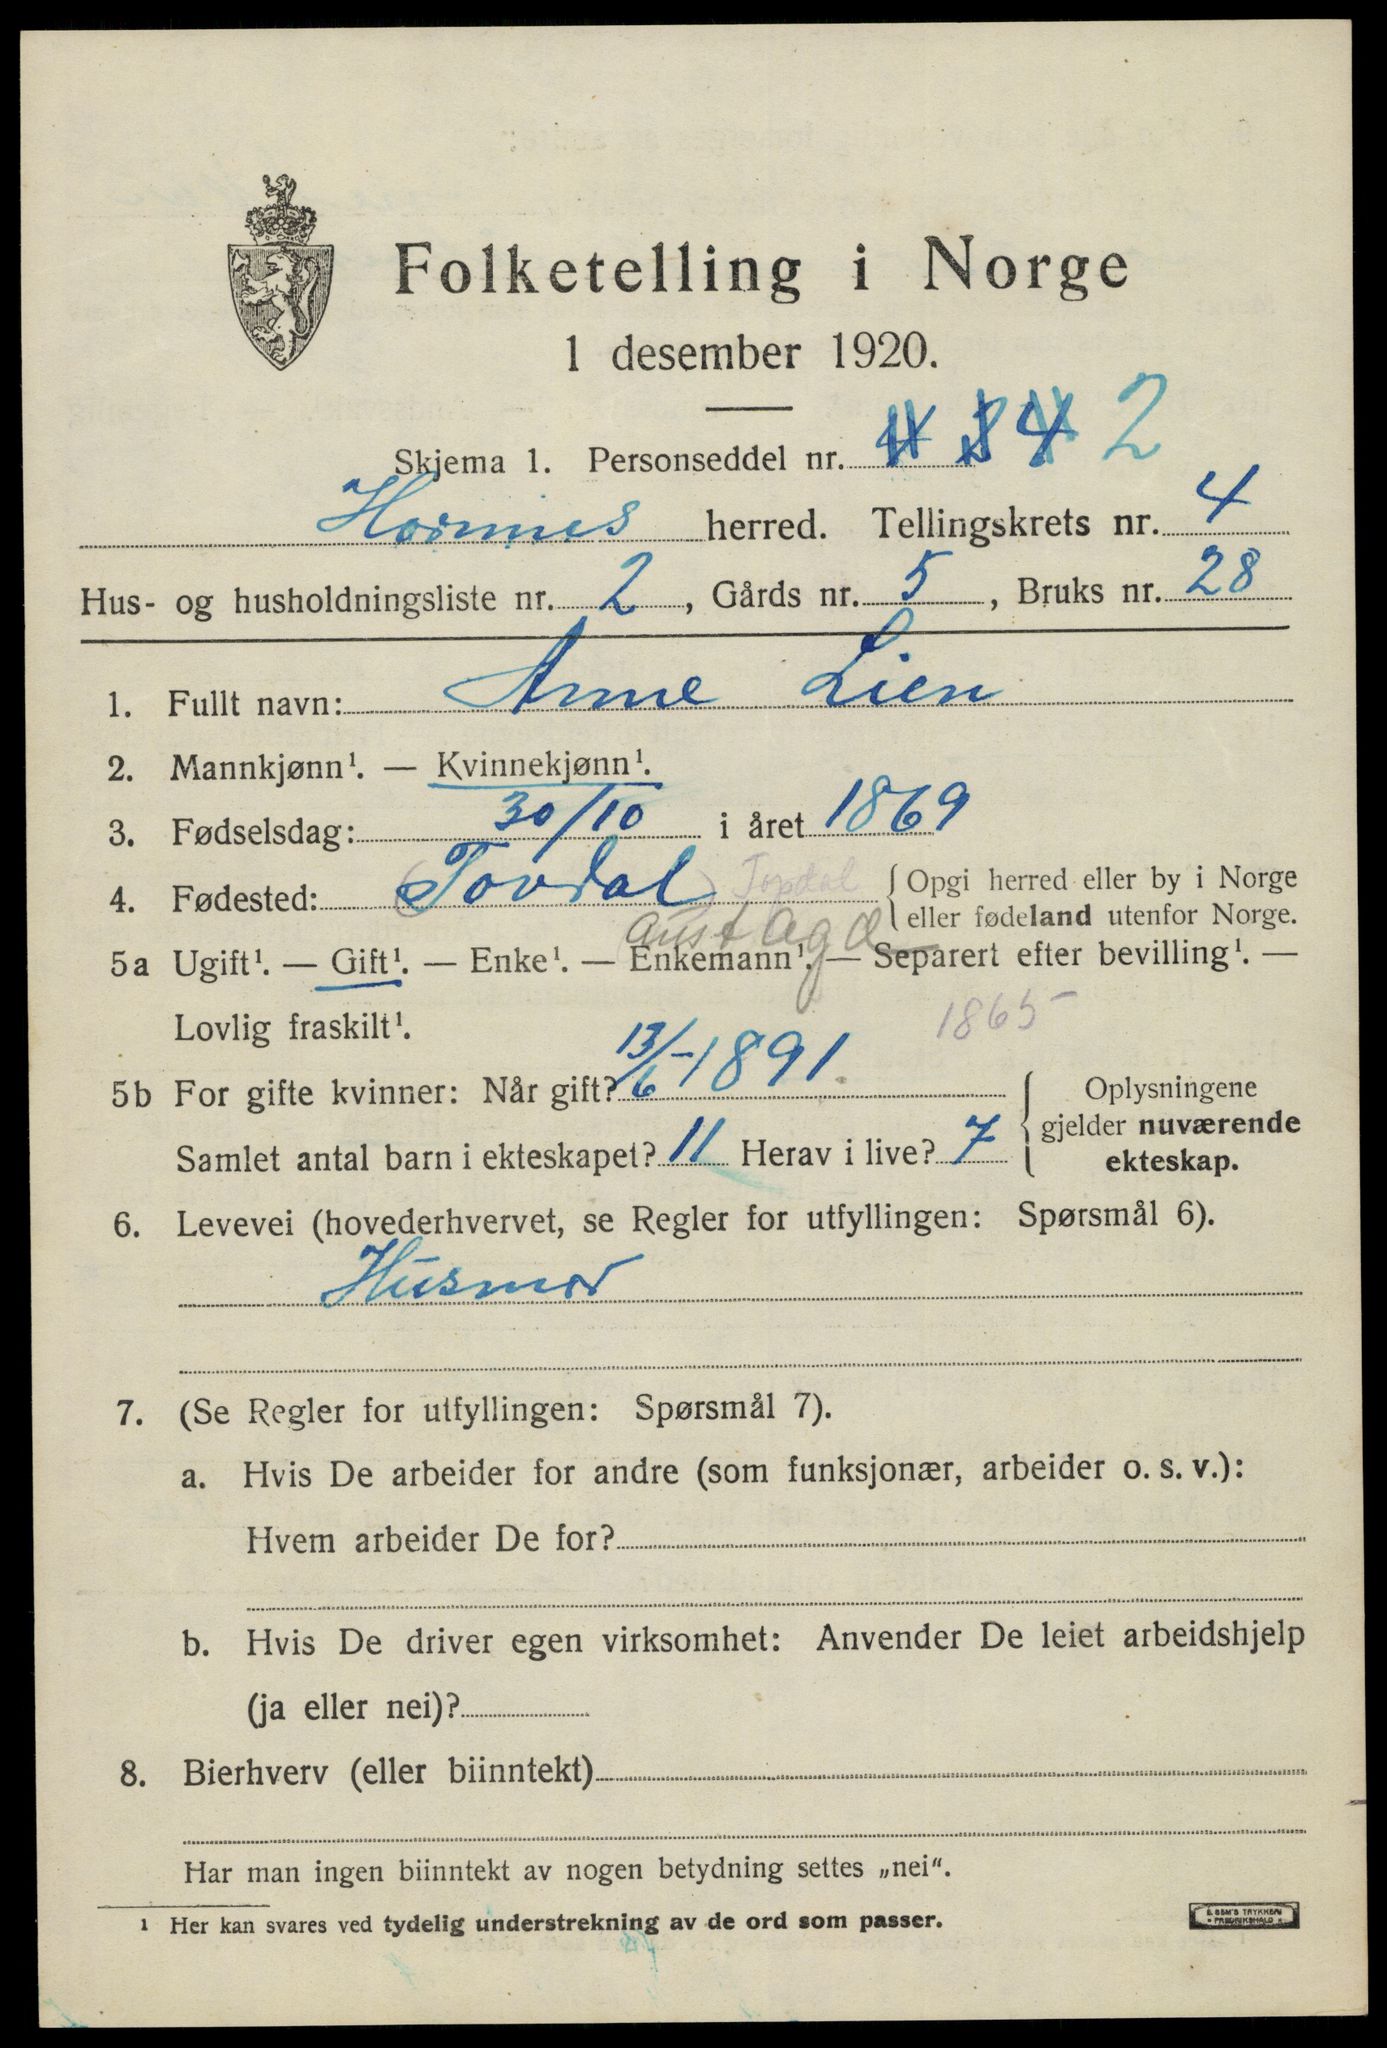 Folketelling i Norge
1 desember 1920.
Skjema 1. Personseddel nr. 2
Hornnes herred. Tellingskrets nr. 4
Hus- og husholdningsliste nr. 2, Gårds nr. 5, Bruks nr. 28
1. Fullt navn: Anne Lien
2. Mannkjønn¹. — Kvinnekjønn¹.
3. Fødselsdag: 30/10 i året 1869
4. Fødested: (Tovdal) Topdal { Opgi herred eller by i Norge
eller fødeland utenfor Norge.
Aust Agd
5a Ugift¹. — Gift¹. — Enke¹. — Enkemann¹. — Separert efter bevilling¹. —
Lovlig fraskilt¹.
1865
5b For gifte kvinner: Når gift? 13/6 - 1891
Samlet antal barn i ekteskapet? 11 Herav i live? 7
Oplysningene
gjelder nuværende
ekteskap.
6. Levevei (hovederhvervet, se Regler for utfyllingen: Spørsmål 6).
Husmor
7. (Se Regler for utfyllingen: Spørsmål 7).
a. Hvis De arbeider for andre (som funksjonær, arbeider o. s. v.):
Hvem arbeider De for?
b. Hvis De driver egen virksomhet: Anvender De leiet arbeidshjelp
(ja eller nei)?
8. Bierhverv (eller biinntekt)
Har man ingen biinntekt av nogen betydning settes „nei“.
¹ Her kan svares ved tydelig understrekning av de ord som passer.
E. SEM'S TRYKKERI
FREDRIKSHALD